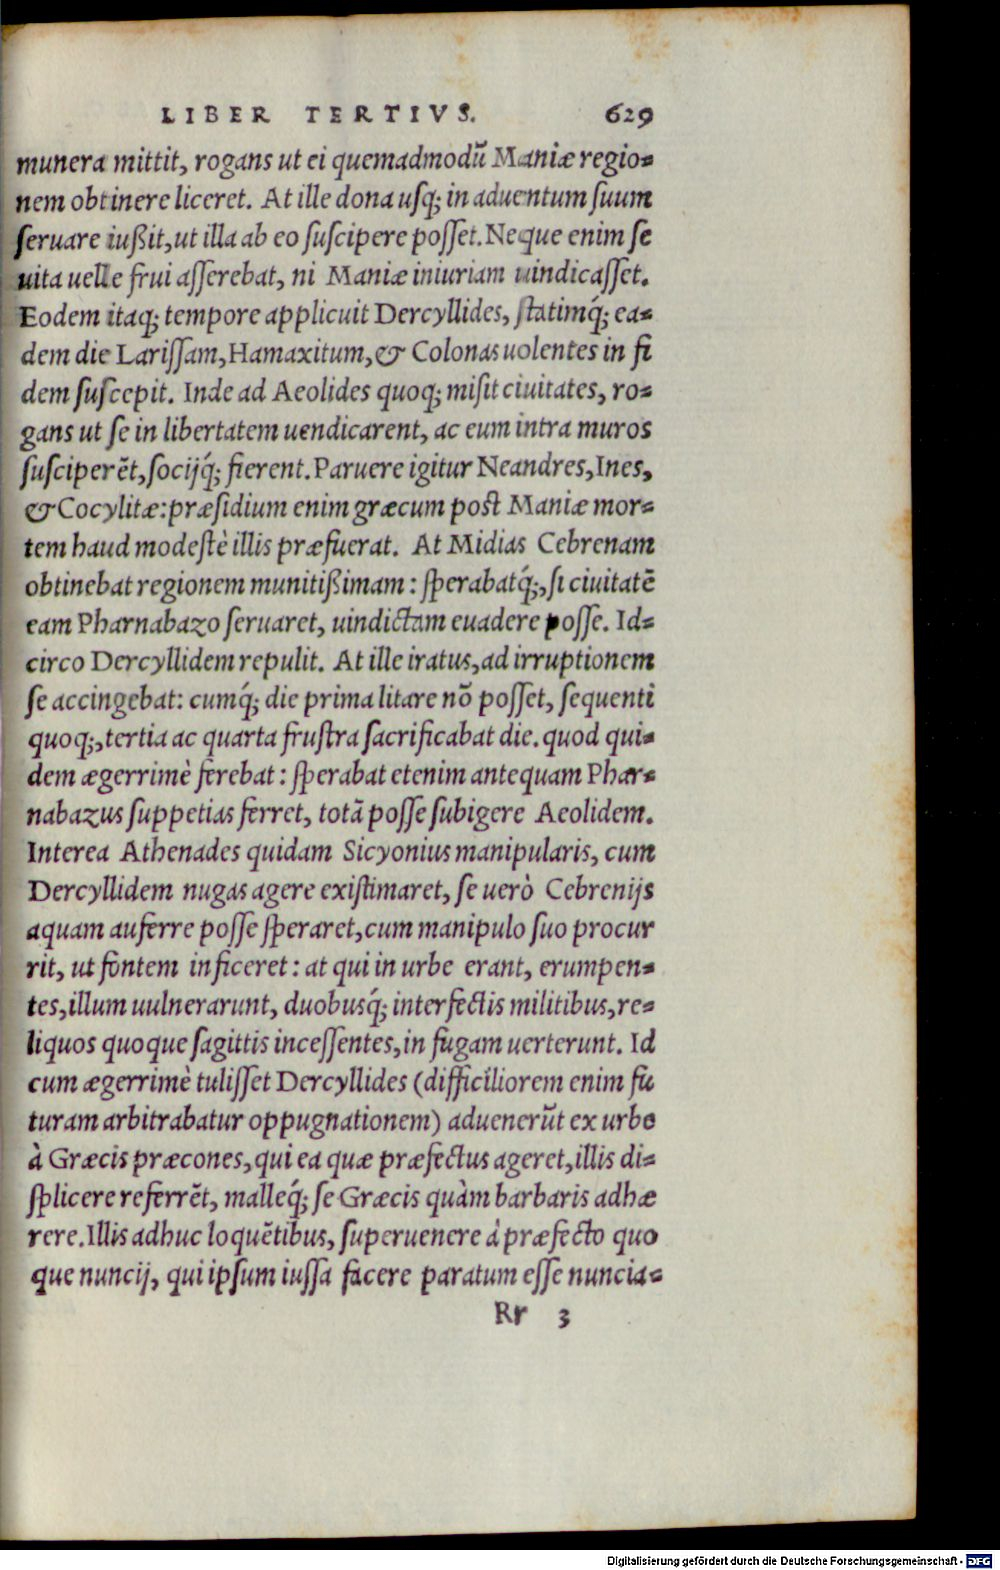 LIBER TERTIVS. 629
munera mittit, rogans ut ei quemadmodũ Maniæ regio-
nem obtinere liceret. At ille dona usq; in aduentum suum
seruare iußit, ut illa ab eo suscipere posset. Neque enim se
uita uelle frui asserebat, ni Maniæ iniuriam uindicasset.
Eodem itaq; tempore applicuit Dercyllides, statimq́; ea-
dem die Larissam, Hamaxitum, & Colonas uolentes in fi
dem suscepit. Inde ad Aeolides quoq; misit ciuitates, ro-
gans ut se in libertatem uendicarent, ac eum intra muros
susciperẽt, socijq́; fierent. Paruere igitur Neandres, Ines,
& Cocylitæ: præsidium enim græcum post Maniæ mor-
tem haud modestè illis præfuerat. At Midias Cebrenam
obtinebat regionem munitißimam: sperabatq́;, si ciuitatẽ
eam Pharnabazo seruaret, uindictam euadere posse. Id-
circo Dercyllidem repulit. At ille iratus, ad irruptionem
se accingebat: cumq́; die prima litare nõ posset, sequenti
quoq;, tertia ac quarta frustra sacrificabat die. quod qui-
dem ægerrimè ferebat: sperabat etenim antequam Phar-
nabazus suppetias ferret, totã posse subigere Aeolidem.
Interea Athenades quidam Sicyonius manipularis, cum
Dercyllidem nugas agere existimaret, se uerò Cebrenijs
aquam auferre posse speraret, cum manipulo suo procur
rit, ut fontem inficeret: at qui in urbe erant, erumpen-
tes, illum uulnerarunt, duobusq́; interfectis militibus, re-
liquos quoque sagittis incessentes, in fugam uerterunt. Id
cum ægerrimè tulisset Dercyllides (difficiliorem enim fu
turam arbitrabatur oppugnationem) aduenerũt ex urbe
à Græcis præcones, qui ea quæ præfectus ageret, illis di-
splicere referrẽt, malleq́; se Græcis quàm barbaris adhæ
rere. Illis adhuc loquẽtibus, superuenere à præfecto quo
que nuncij, qui ipsum iussa facere paratum esse nuncia-
Rr 3
Digitalisierung gefördert durch die Deutsche Forschungsgemeinschaft - DFG